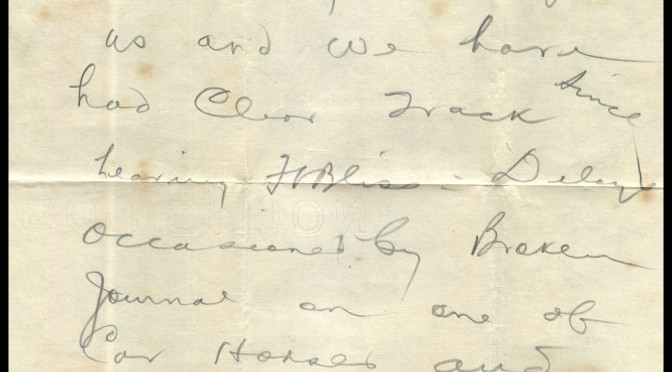 us and we have
had Clear Track since
leaving Ft Bliss - Delay
occasioned by Broken
Journal on one of
Car Horses and